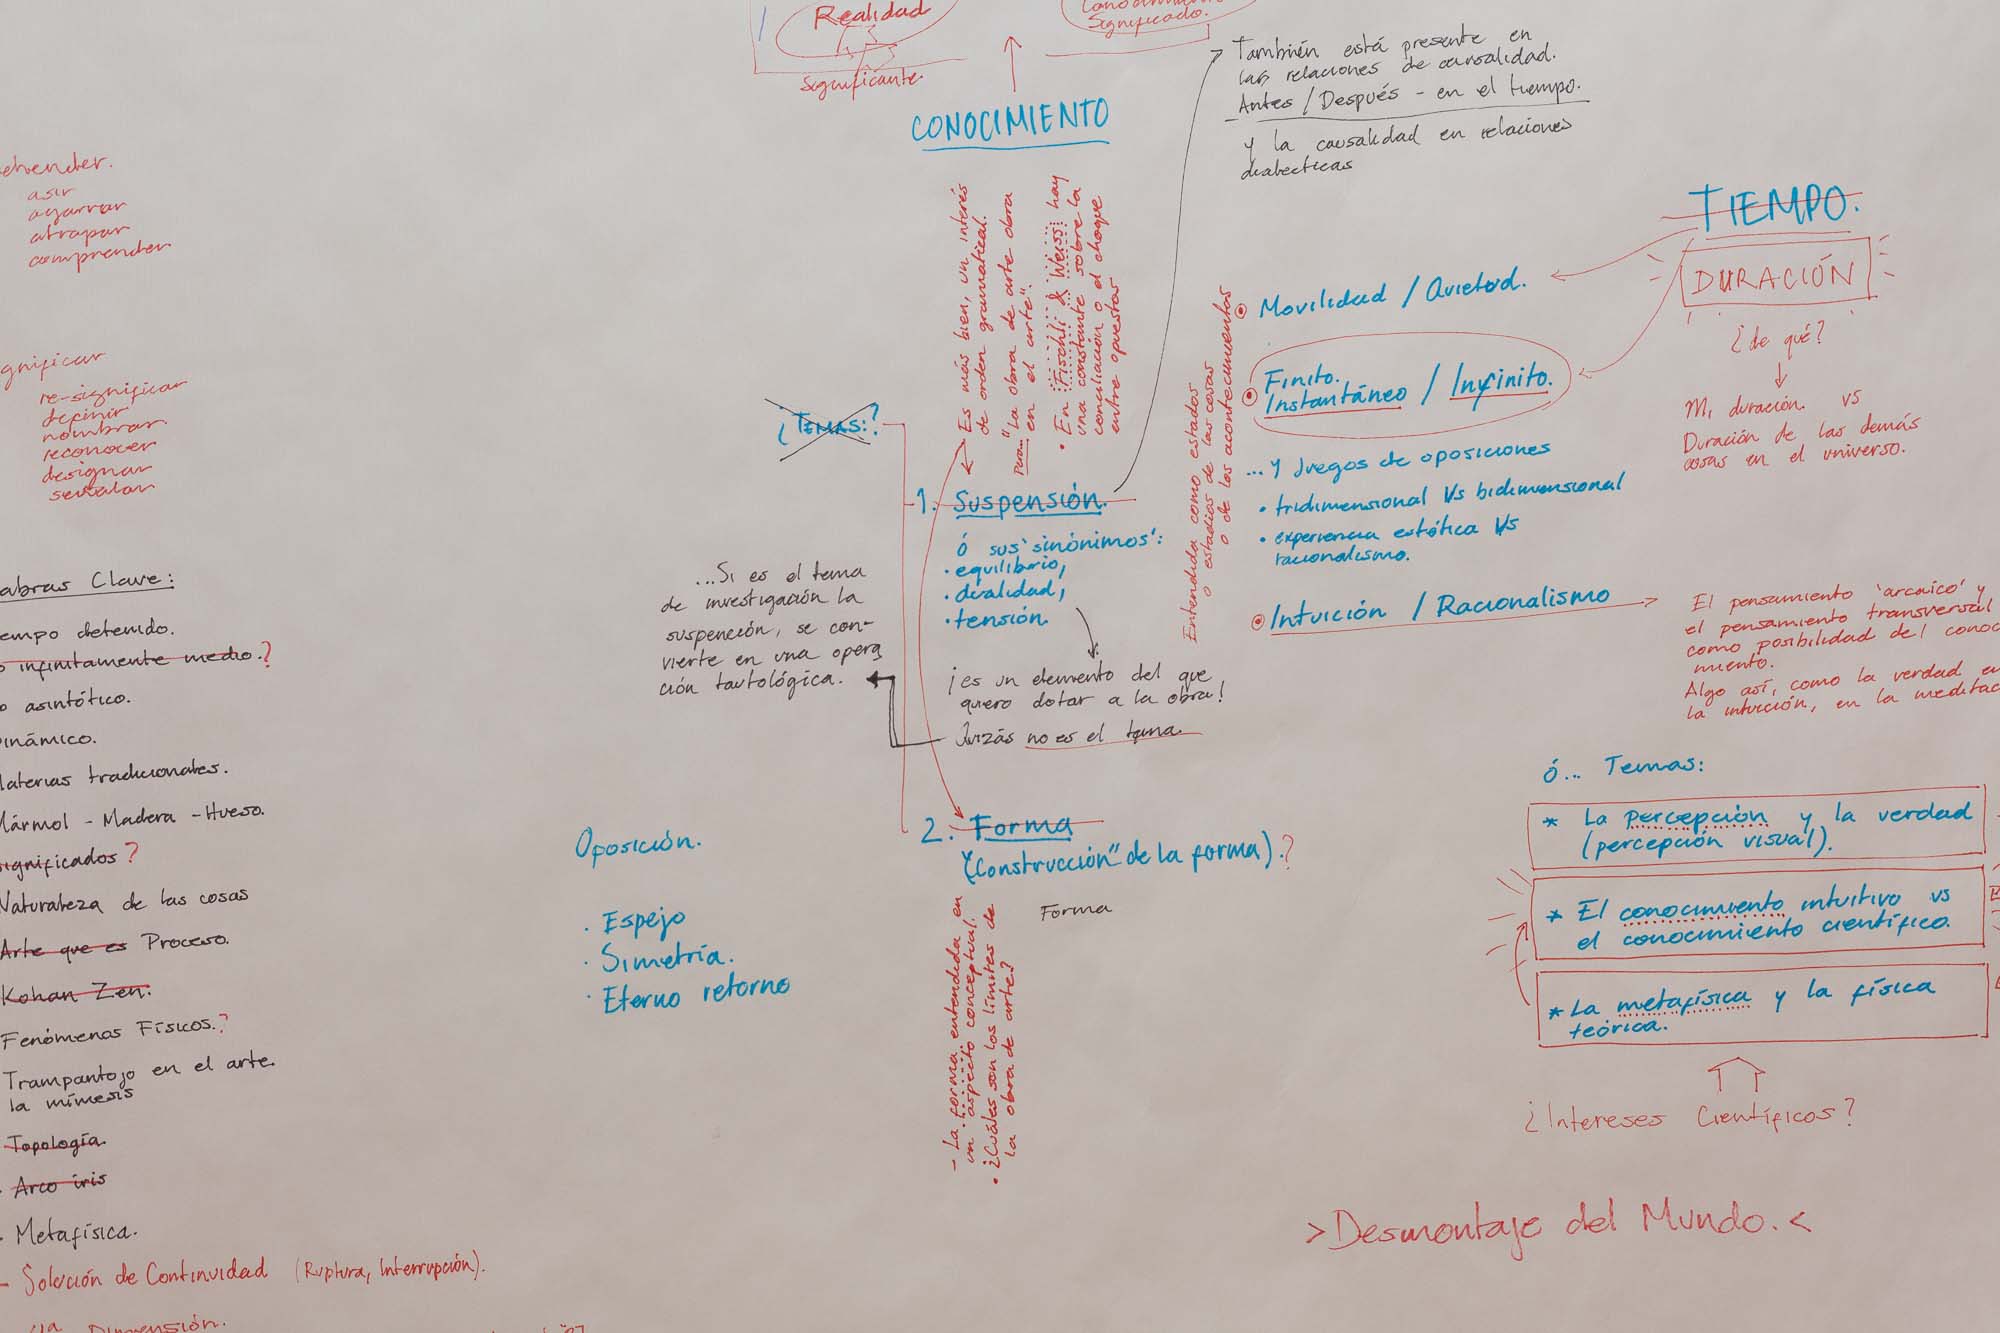 Realidad
Significante.
Significado.
CONOCIMIENTO
También está presente en
las relaciones de causalidad.
Antes / Después - en el tiempo.
y la causalidad en relaciones
dialecticas
asir
agarrar
atrapar
comprender
re-significar
definir
nombrar.
reconocer
designar
señalar
Es más bien, un interés
de orden gramatical.
Para... "La obra de arte obra
en el arte".
• En Fischli & Weiss: hay
una constante sobre la
conciliación o el choque
entre opuestas
TIEMPO.
DURACIÓN
¿de qué?
Mi duración. vs
Duración de las demás
cosas en el universo.
Entendida como estados
o estadios de las cosas
o de los acontecimientos
Movilidad / Quietud.
Finito.
Instantáneo / Infinito.
...Y Juegos de oposiciones
• tridimensional Vs bidimensional
• experiencia estética Vs
racionalismo.
Intuición / Racionalismo
El pensamiento 'arcaico' y
el pensamiento transversal
como posibilidad del conoc
miento.
Algo así, como la verdad en
la intuición, en la meditac
¿TEMAS:?
1. Suspensión.
ó sus 'sinónimos':
• equilibrio,
• dualidad,
• tensión.
¡es un elemento del que
quiero dotar a la obra!
Quizás no es el tema.
...Si es el tema
de investigación la
suspención, se con-
vierte en una opera
ción tautológica.
2. Forma
("Construcción" de la forma).?
Forma
- La forma entendida en
un aspecto conceptual.
• ¿Cuáles son los límites de
la obra de arte?
Oposición.
· Espejo
· Simetría.
· Eterno retorno
abras Clave:
empo detenido.
o infinitamente medio.?
o asintótico.
inámico.
aterias tradicionales.
ármol - Madera - Hueso.
significados?
Naturaleza de las cosas
Arte que es Proceso.
Kohan Zen.
Fenómenos Físicos.?
Trampantojo en el arte.
la mímesis
Topología.
Arco iris
- Metafísica.
- Solución de Continuidad (Ruptura, Interrupción).
Dimensión.
ó... Temas:
* La percepción y la verdad
(percepción visual).
* El conocimiento intuitivo vs
el conocimiento científico.
* La metafísica y la física
teórica.
¿Intereses Científicos?
>Desmontaje del Mundo.<